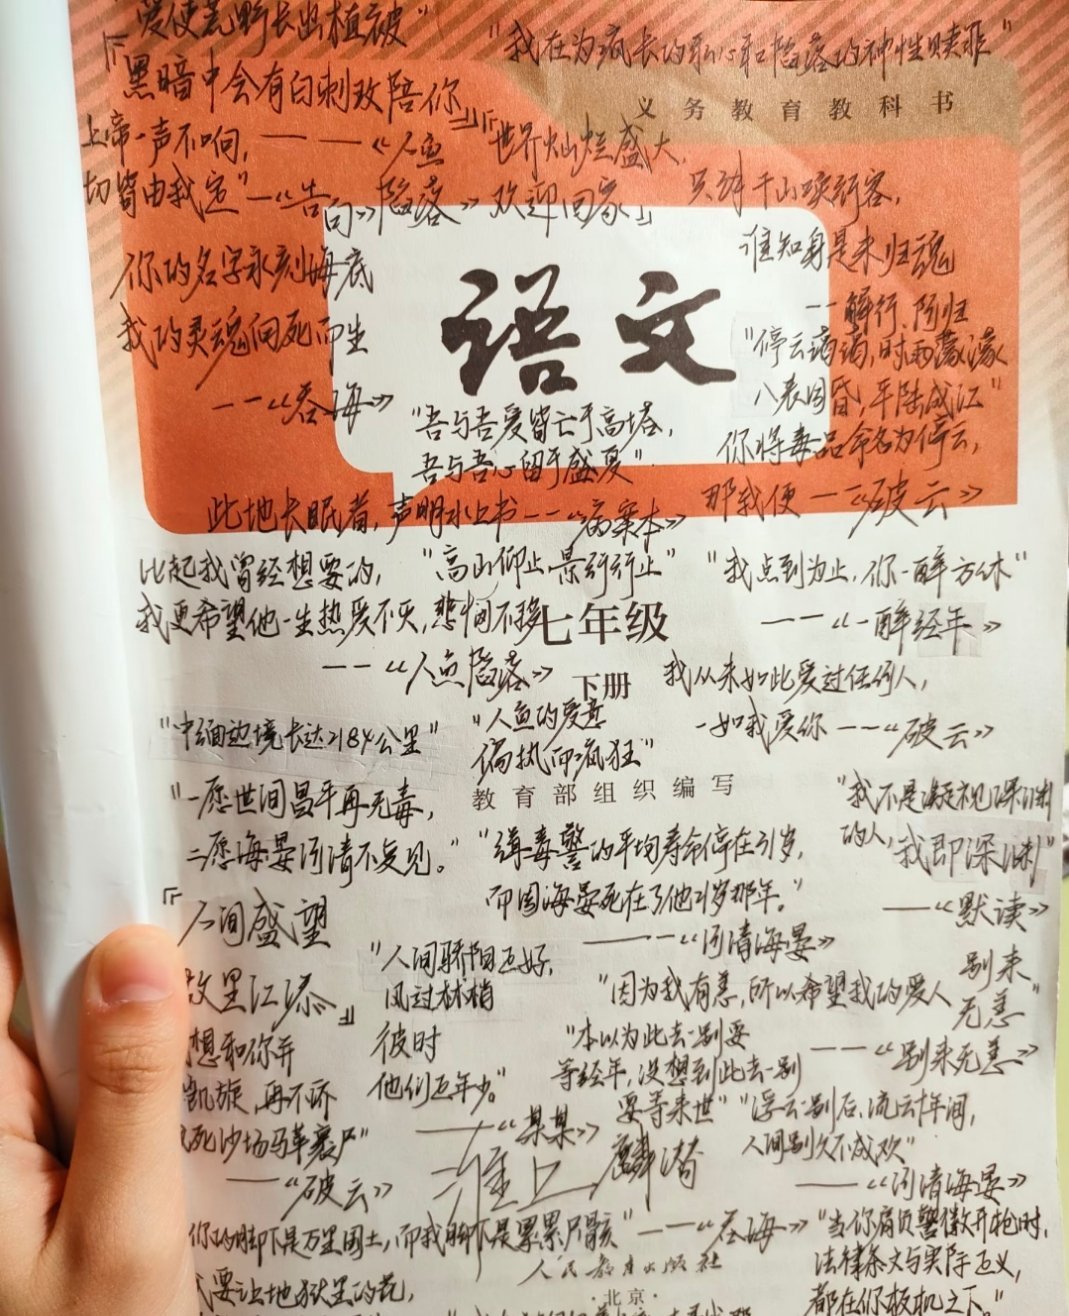 爱使荒野长出植被"
"我在为疯长的私心和陷落的神性赎罪"
『黑暗中会有白刺玫陪你』
义务教育教科书
上帝一声不响,
一一一《人鱼
陷落》
『世界灿烂盛大,
欢迎回家』
切皆由我定"一《告白》
只缘千山唤行客,
谁知身是未归魂
一一解行、阿归
你的名字永刻海底
我的灵魂向死而生
一一《吞海》
语文
"停云霭霭,时雨濛濛
八表同昏,平陆成江"
你将毒品命名为停云,
那我便一一《破云》
"吾与吾爱皆亡于高塔,
吾与吾心留于盛夏"
此地长眠者,声明水上书一一《病案本》
比起我曾经想要的,
我更希望他一生热爱不灭,悲悯不移
一一《人鱼陷落》
"高山仰止,景行行止"
"我点到为止,你一醉方休"
一一《一醉经年》
七年级
下册
我从未如此爱过任何人,
一如我爱你一一《破云》
"中缅边境长达2184公里"
"人鱼的爱意
偏执而疯狂"
教育部组织编写
"一愿世间昌平再无毒,
二愿海晏河清不复见。"
"缉毒警的平均寿命停在41岁,
而困海晏死在了他21岁那年。"
一一一《河清海晏》
"我不是凝视深渊
的人,我即深渊"
一一《默读》
『人间盛望
故里江添』
"人间骄阳正好,
风过林梢
彼时
他们正年少。"
一一《某某》
"因为我有恙,所以希望我的爱人
别来
无恙"
一一《别来无恙》
想和你并
凯旋,再不济
死沙场马革裹尸"
一一《破云》
"本以为此去一别要
等经年,没想到此去一别
要等来世"
"浮云一别后,流云十年间,
人间别久不成欢"
一一《河清海晏》
淮上 麟潜
你的脚下是万里国土,而我脚下是累累尸骸"一一《吞海》
"当你肩负警徽开枪时,
法律条文与实际正义,
都在你扳机之下"
人民教育出版社
·北京·
我要让地狱里的花,